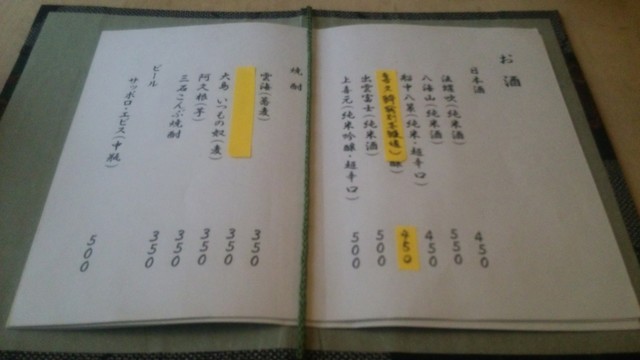 お酒
日本酒
法螺吹(純米酒) 450
八海山(純米酒) 550
船中八策(純米・超辛口) 450
450
出雲富士(純米酒) 500
上喜元(純米吟醸・超辛口) 500
焼酎
雲海(蕎麦) 350
大島 いつもの奴(麦) 350
阿久根(芋) 350
三石こんぶ焼酎 350
ビール 350
サッポロ・エビス(中瓶) 500